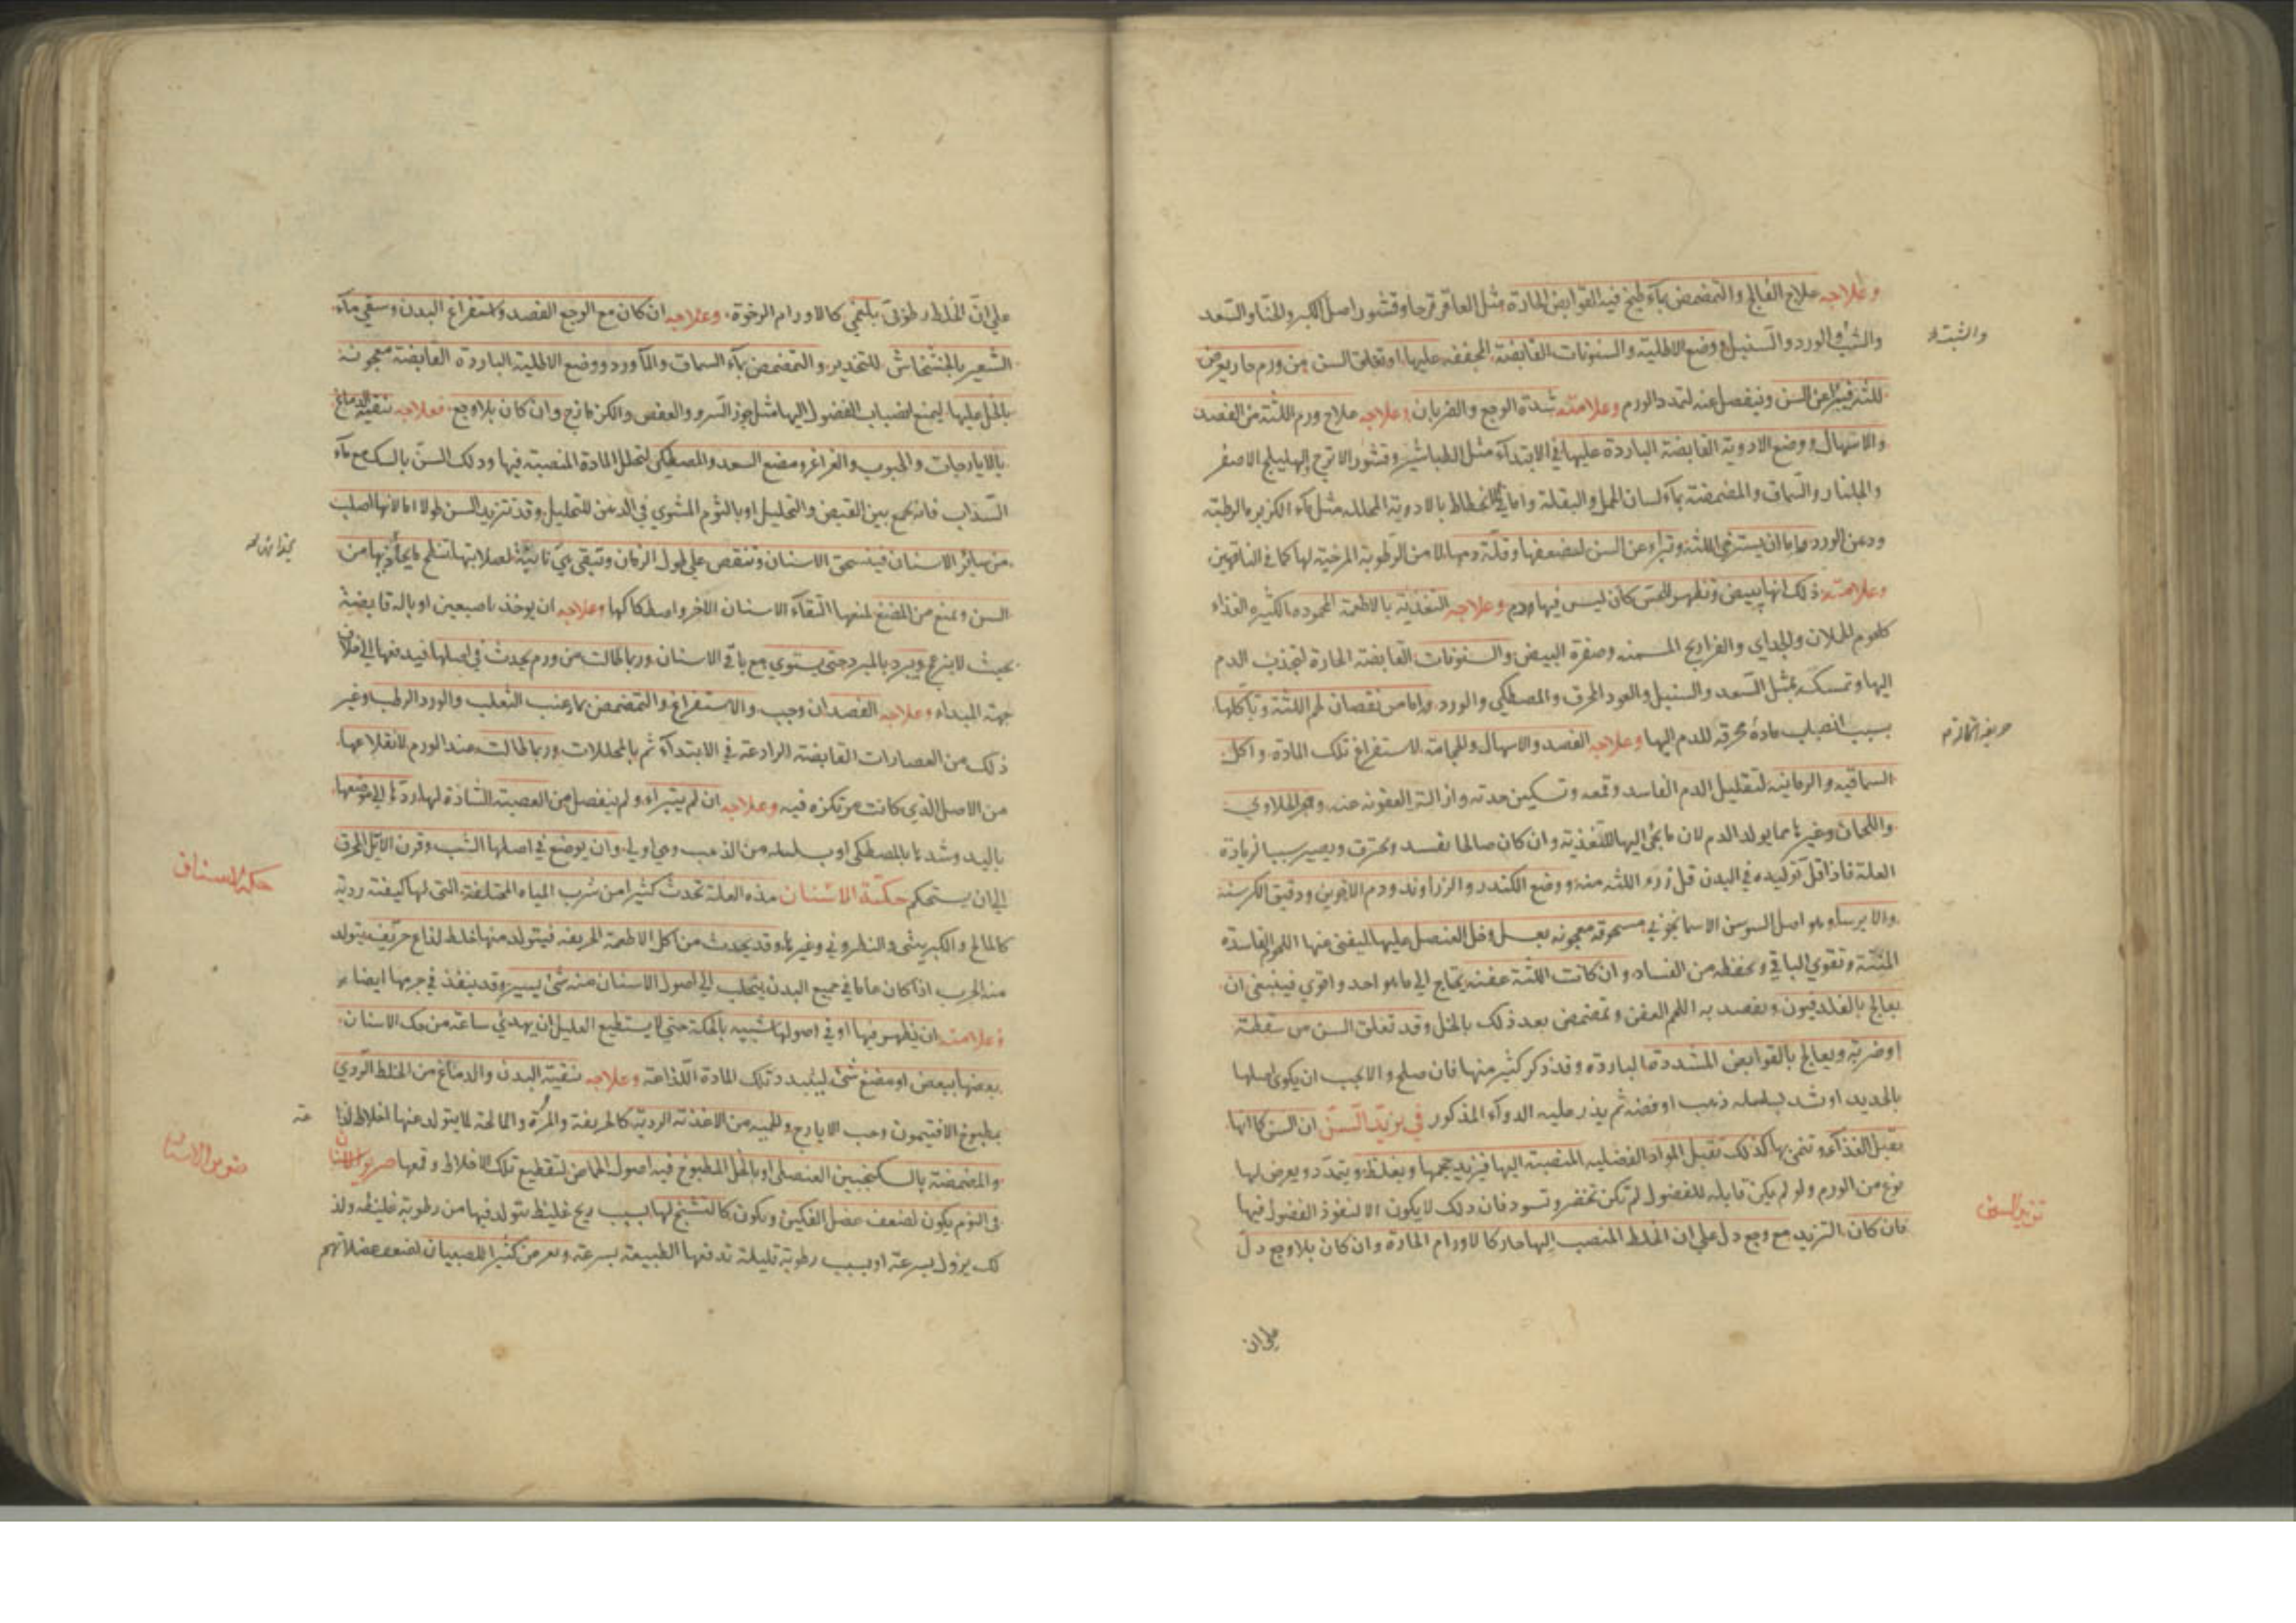 وعلاجه علاج الفالج والتمضمض بماء طبخ فيه القوابض الحارة مثل العاقرقرحا وقشور اصل الكبر والحنا والسعد
والشب والورد والسنبل ووضع الاطلية والسنونات القابضة المجففه عليها او تعلق السن من ورم حار يعرض
للثة فيتبرا عن السن وينفصل عنه لتمدد الورم وعلامته شدة الوجع والضربان وعلاجه علاج ورم اللثة من الفصد
والاسهال ووضع الادوية القابضة الباردة عليها في الابتداء مثل الطباشير وقشور الاترج والهليلج الاصفر
والجلنار والسماق والمضمضة بماء لسان الحمل والبقلة واما في الانحطاط بالادوية المحلله مثل ماء الكزبرة الرطبة
ودهن الورد واما ان يسترخي اللثة وتبراء عن السن لضعفها وقلة دمها لا من الرطوبة المرخية لها كما في الناقهين
وعلامته ذلك انها يبيض وتظهر للحس كان ليس فيها دم وعلاجه التغذية بالاطعمة المحموده الكثيره الغذاء
كلحوم الحملان والجداي والفراريج المسمنه وصفرة البيض والسنونات القابضة الحارة لتجذب الدم
اليها وتمسكه بمثل السعد والسنبل والعود المحرق والمصطكي والورد واما من نقصان لحم اللثة وتاكلها
بسبب انصباب مادة محرقه للدم اليها وعلاجه الفصد والاسهال والحجامة لاستفراغ تلك المادة واكل
السماقيه والرمانيه لتقليل الدم الفاسد وقمعه وتسكين حدته وازالة العفونه عنه وهجر الحلاوي
واللحمان وغيرها مما يولد الدم لان ما يجئ اليها للتغذية وان كان صالحا يفسد ويحترق ويصير سببا لزيادة
العلة فاذا قل توليده في البدن قل نزوه اللثه منه ووضع الكندر والزراوند ودم الاخوين ودقيق الكرسنه
والايرساء وهو اصل السوسن الاسمانجوني مسحوقه معجونه بعسل وخل العنصل عليها ليفنى عنها اللحم الفاسده
المنتنة وتقوي الباقي وتحفظه من الفساد وان كانت اللثة عفنه يحتاج الى ما هو احد واقوي فينبغي ان
يعالج بالفلدفيون ويقصد به اللحم العفن وتمضمض بعد ذلك بالخل وقد تعلق السن من سقطة
او ضربة ويعالج بالقوابض المشدده الباردة وقد ذكر كثير منها فان صلح والا يجب ان يكوى اصلها
بالحديد او شد بسلسله ذهب او فضه ثم يذر عليه الدواء المذكور في تزيد السن ان السن كما انها
تقبل الغذاء وتنمى بها كذلك تقبل المواد الفضليه المنصبة اليها فيزيد حجمها ويغلظ ويتمدد ويعرض لها
نوع من الورم ولو لم يكن قابله للفضول لم تكن تخضر وتسود فان ذلك لا يكون الا لنفوذ الفضول فيها
فان كان التزيد مع وجع دل على ان الخلط المنصب اليها حار كالاورام الحارة وان كان بلا وجع دل
تزيد السن
على ان
على ان الخلط رطوبى بلغمي كالاورام الرخوة وعلاجه ان كان مع الوجع الفصد واستفراغ البدن وسقي ماء
الشعير بالخشخاش للتخدير والتمضمض بماء السماق والماورد ووضع الاطلية الباردة القابضة معجونه
بالخل عليها ليمنع انصباب الفضول اليها مثل جوز السرو والعفص والكزمازج وان كان بلا وجع فعلاجه تنقية الدماغ
بالايارجات والحبوب والغراغر ومضغ السعد والمصطكي لتحلل المادة المنصبة فيها ودلك السن بالسك مع ماء
السذاب فانه يجمع بين القبض والتحليل او بالثوم المشوي في الدهن للتحليل وقد تتزيد السن طولا اما لانها اصلب
من سائر الاسنان فينسحق الاسنان وتنقص على طول الزمان وتبقى هي ثابتة لصلابتها تنلم ما يحاذيها من
السن ويمنع من المضغ لمنعها التقاء الاسنان الاخر واصطكاكها وعلاجه ان يوخذ باصبعين او بالة قابضة
بحيث لا ينزعج ويبرد بالمبرد حتى يستوي مع باقي الاسنان وربما طالت من ورم يحدث في اصلها فيدفعها الى خلاف
جهة المبداء وعلاجه الفصد ان وجب والاستفراغ والتمضمض بماء عنب الثعلب والورد الرطب وغير
ذلك من العصارات القابضه الرادعة في الابتداء ثم بالمحللات وربما طالت عند الورم لانقلاعها
من الاصل الذي كانت مرتكزه فيه وعلاجه ان لم يتبراء ولم ينفصل من العصبة الشادة لها ردها الى موضعها
باليد وشدها بالمصطكى او بسلسله من الذهب وهي اولى وان يوضع في اصلها الشب وقرن الايل المحرق
الى ان يستحكم حكة الاسنان هذه العلة تحدث كثيرا من شرب المياه المختلفة التى لها كيفية ردية
كالمالح والكبريتى والنطروني وغيرها وقد يحدث من اكل الاطعمة الحريفه فيتولد منها خلط لذاع حريف يتولد
منه الجرب اذا كان عاما في جميع البدن يتحلب الى اصول الاسنان منه شئ يسير وقد ينفذ في جرمها ايضا
وعلامته ان يظهر فيها او في اصولها شبيه بالحكة حتى لا يستطيع العليل ان يهدي ساعة من حك الاسنان
بعضها ببعض او مضغ شئ ليتبدد تلك المادة اللذاعة وعلاجه تنقية البدن والدماغ من الخلط الردي
بمطبوخ الافتيمون وحب الايارج والحميه من الاغذية الردية كالحريفة والمرة والمالحة لما يتولد عنها اخلاط لذا
والمضمضة بالسكنجبين العنصلى او بالخل المطبوخ فيه اصول الحماض لتقطيع تلك الاخلاط وقمعها صرير الاسنان
فى النوم يكون لضعف عضل الفكين ويكون كالتشنج لها بسبب ريح غليظ يتولد فيها من رطوبة غليظه ولذ
لك يزول بسرعة او بسبب رطوبة قليلة تدفعها الطبيعة بسرعة ويعرض كثيرا للصبيان لضعف عضلاتهم
حكة الاسنان
عة
صرير الاسنان